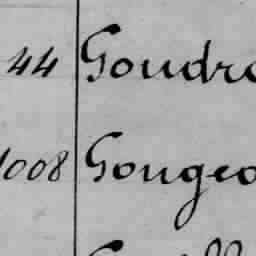 44 Goudre
1008 Gougeo